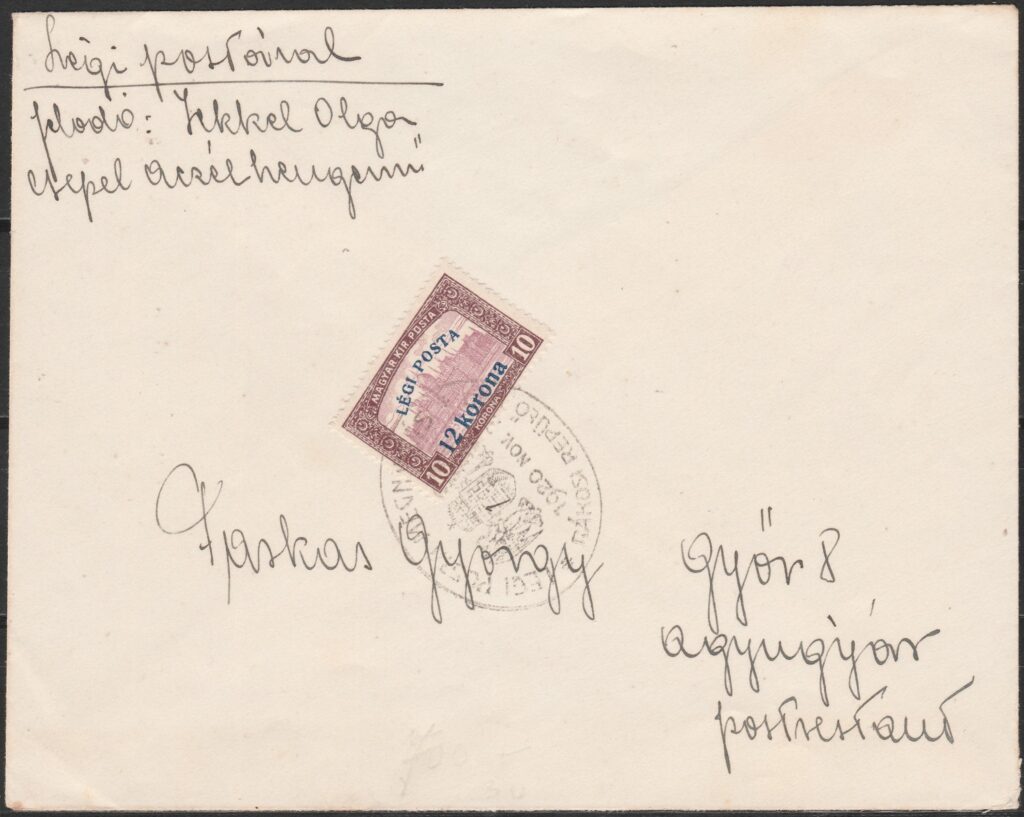 Légi postával
feladó: Jekkel Olga
csepel aczélhengermű
MAGYAR KIR. POSTA
LÉGI POSTA
12 korona
10 KORONA 10
RÁKOSI REPÜLŐ
1920 NOV.
Farkas György
Győr 8
agyugyár
postrestant